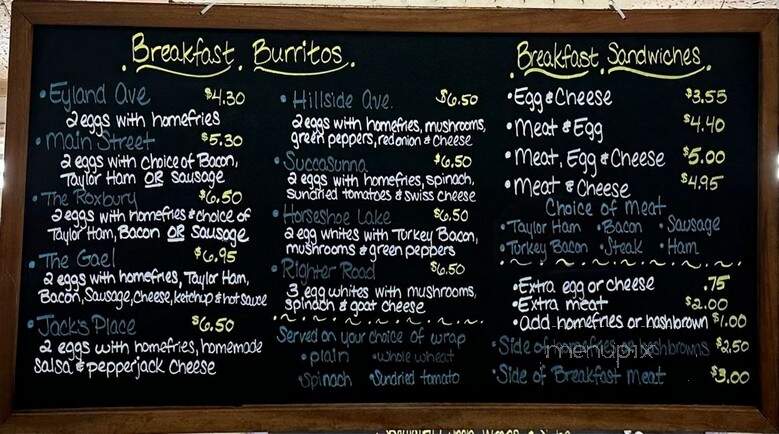 Breakfast Burritos.
• Eyland Ave $4.30
2 eggs with homefries
• Main Street $5.30
2 eggs with choice of Bacon,
Taylor Ham OR Sausage
• The Roxbury $6.50
2 eggs with homefries & choice of
Taylor Ham, Bacon OR Sausage
• The Gael $6.95
2 eggs with homefries, Taylor Ham,
Bacon, Sausage, cheese, ketchup & hot sauce
• Jack's Place $6.50
2 eggs with homefries, homemade
salsa & pepperjack cheese
• Hillside Ave. $6.50
2 eggs with homefries, mushrooms,
green peppers, red onion & cheese
• Succasunna $6.50
2 eggs with homefries, spinach,
sundried tomatoes & swiss cheese
• Horseshoe Lake $6.50
2 egg whites with Turkey Bacon,
mushrooms & green peppers
• Righter Road $6.50
3 egg whites with mushrooms,
spinach & goat cheese
Served on your choice of wrap
• plain • whole wheat
• Spinach • Sundried tomato
Breakfast Sandwiches.
• Egg & Cheese $3.55
• Meat & Egg $4.40
• Meat, Egg & Cheese $5.00
• Meat & Cheese $4.95
Choice of Meat
• Taylor Ham • Bacon • Sausage
• Turkey Bacon • Steak • Ham
• Extra egg or cheese .75
• Extra meat $2.00
• add homefries or hashbrown $1.00
• Side of homefries or hashbrowns $2.50
menupix
• Side of Breakfast Meat $3.00